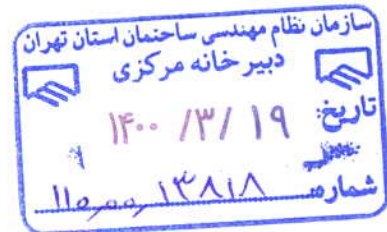 سازمان نظام مهندسی ساختمان استان تهران
دبیر خانه مرکزی
تاریخ: ۱۴۰۰ /۳/ ۱۹
شماره ۱۱۵,۰۰,۱۳۸۱۸